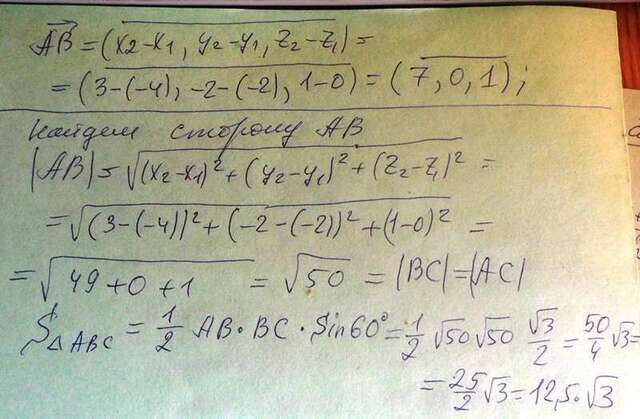 AB = (x₂-x₁, y₂-y₁, z₂-z₁) =
= (3-(-4), -2-(-2), 1-0) = (7, 0, 1);
Найдем сторону AB
|AB| = √((x₂-x₁)² + (y₂-y₁)² + (z₂-z₁)²) =
= √((3-(-4))² + (-2-(-2))² + (1-0)²) =
= √(49+0+1) = √50 = |BC| = |AC|
S△ABC = 1/2 AB · BC · Sin60° = 1/2 √50 √50 √3/2 = 50/4 √3 =
= 25/2 √3 = 12,5 · √3